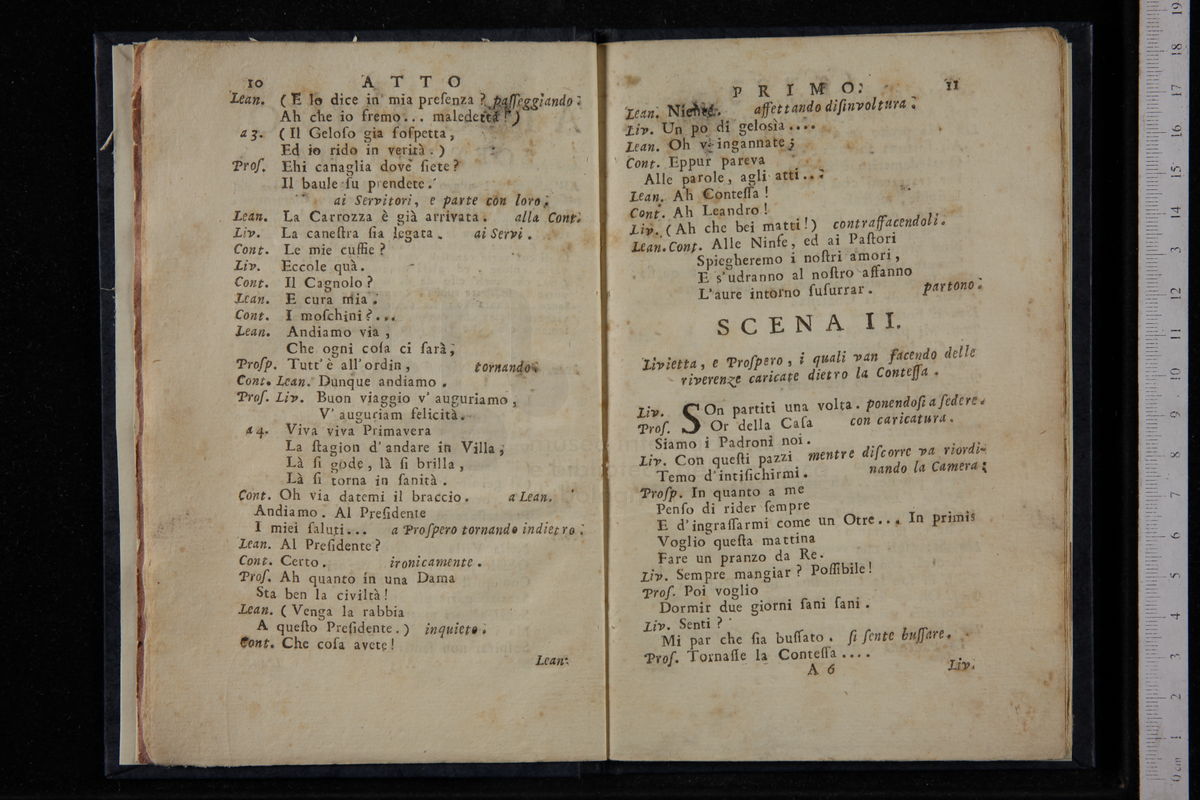 10 ATTO
Lean. ( E lo dice in mia preſenza ? paſſeggiando.
Ah che io fremo... maledetta! )
a 3. ( Il Geloſo gia ſoſpetta,
Ed io rido in verità. )
Proſ. Ehi canaglia dove ſiete?
Il baule ſu prendete.
ai Servitori, e parte con loro.
Lean. La Carrozza è già arrivata. alla Cont.
Liv. La caneſtra ſia legata. ai Servi.
Cont. Le mie cuffie?
Liv. Eccole quà.
Cont. Il Cagnolo?
Lean. E cura mia.
Cont. I moſchini?...
Lean. Andiamo via,
Che ogni coſa ci ſarà,
Proſp. Tutt' è all' ordin, tornando.
Cont. Lean. Dunque andiamo.
Proſ. Liv. Buon viaggio v' auguriamo,
V' auguriam felicità.
a 4. Viva viva Primavera
La ſtagion d' andare in Villa,
Là ſi gode, là ſi brilla,
Là ſi torna in ſanità.
Cont. Oh via datemi il braccio. a Lean.
Andiamo. Al Preſidente
I miei ſaluti... a Proſpero tornando indietro.
Lean. Al Preſidente?
Cont. Certo. ironicamente.
Proſ. Ah quanto in una Dama
Sta ben la civiltà!
Lean. ( Venga la rabbia
A queſto Preſidente. ) inquieto.
Cont. Che coſa avete!
Lean.
PRIMO. 11
Lean. affettando diſinvoltura.
Liv. Un po di geloſìa....
Lean. Oh v' ingannate;
Cont. Eppur pareva
Alle parole, agli atti...
Lean. Ah Conteſſa!
Cont. Ah Leandro!
Liv. ( Ah che bei matti! ) contraffacendoli.
Lean. Cont. Alle Ninfe, ed ai Paſtori
Spiegheremo i noſtri amori,
E s' udranno al noſtro affanno
L' aure intorno ſuſurrar. partono.
SCENA II.
Livietta, e Proſpero, i quali van facendo delle
riverenze caricate dietro la Conteſſa.
Liv. SOn partiti una volta. ponendoſi a ſedere.
Proſ. Or della Caſa con caricatura.
Siamo i Padroni noi.
Liv. Con queſti pazzi mentre diſcorre va riordi-
Temo d' intiſichirmi. nando la Camera;
Proſp. In quanto a me
Penſo di rider ſempre
E d' ingraſſarmi come un Otre... In primis
Voglio queſta mattina
Fare un pranzo da Re.
Liv. Sempre mangiar? Poſſibile!
Proſ. Poi voglio
Dormir due giorni ſani ſani.
Liv. Senti?
Mi par che ſia buſſato. ſi ſente buſſare.
Proſ. Tornaſſe la Conteſſa....
A 6 Liv.